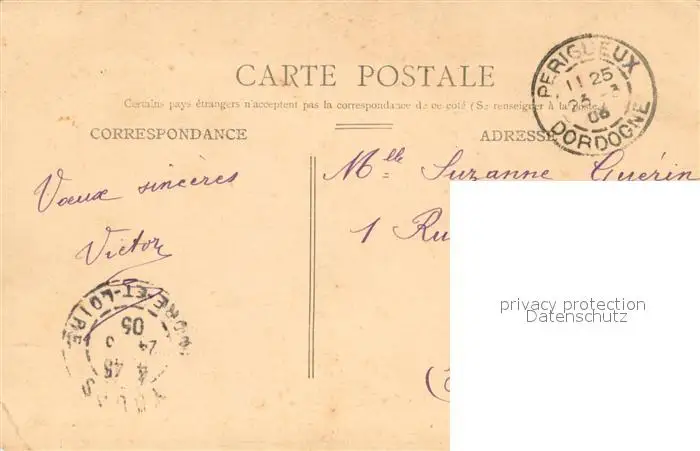 CARTE POSTALE
Certains pays étrangers n'acceptent pas la correspondance de ce coté (Se renseigner à la poste
CORRESPONDANCE
ADRESSE
PERIGUEUX
11 25
23 3
06
DORDOGNE
Vœux sincères
Victor
Mlle Suzanne Guérin
1 Ru
privacy protection
Datenschutz
INDRE-ET-LOIRE
4 45
24 3
TOURS